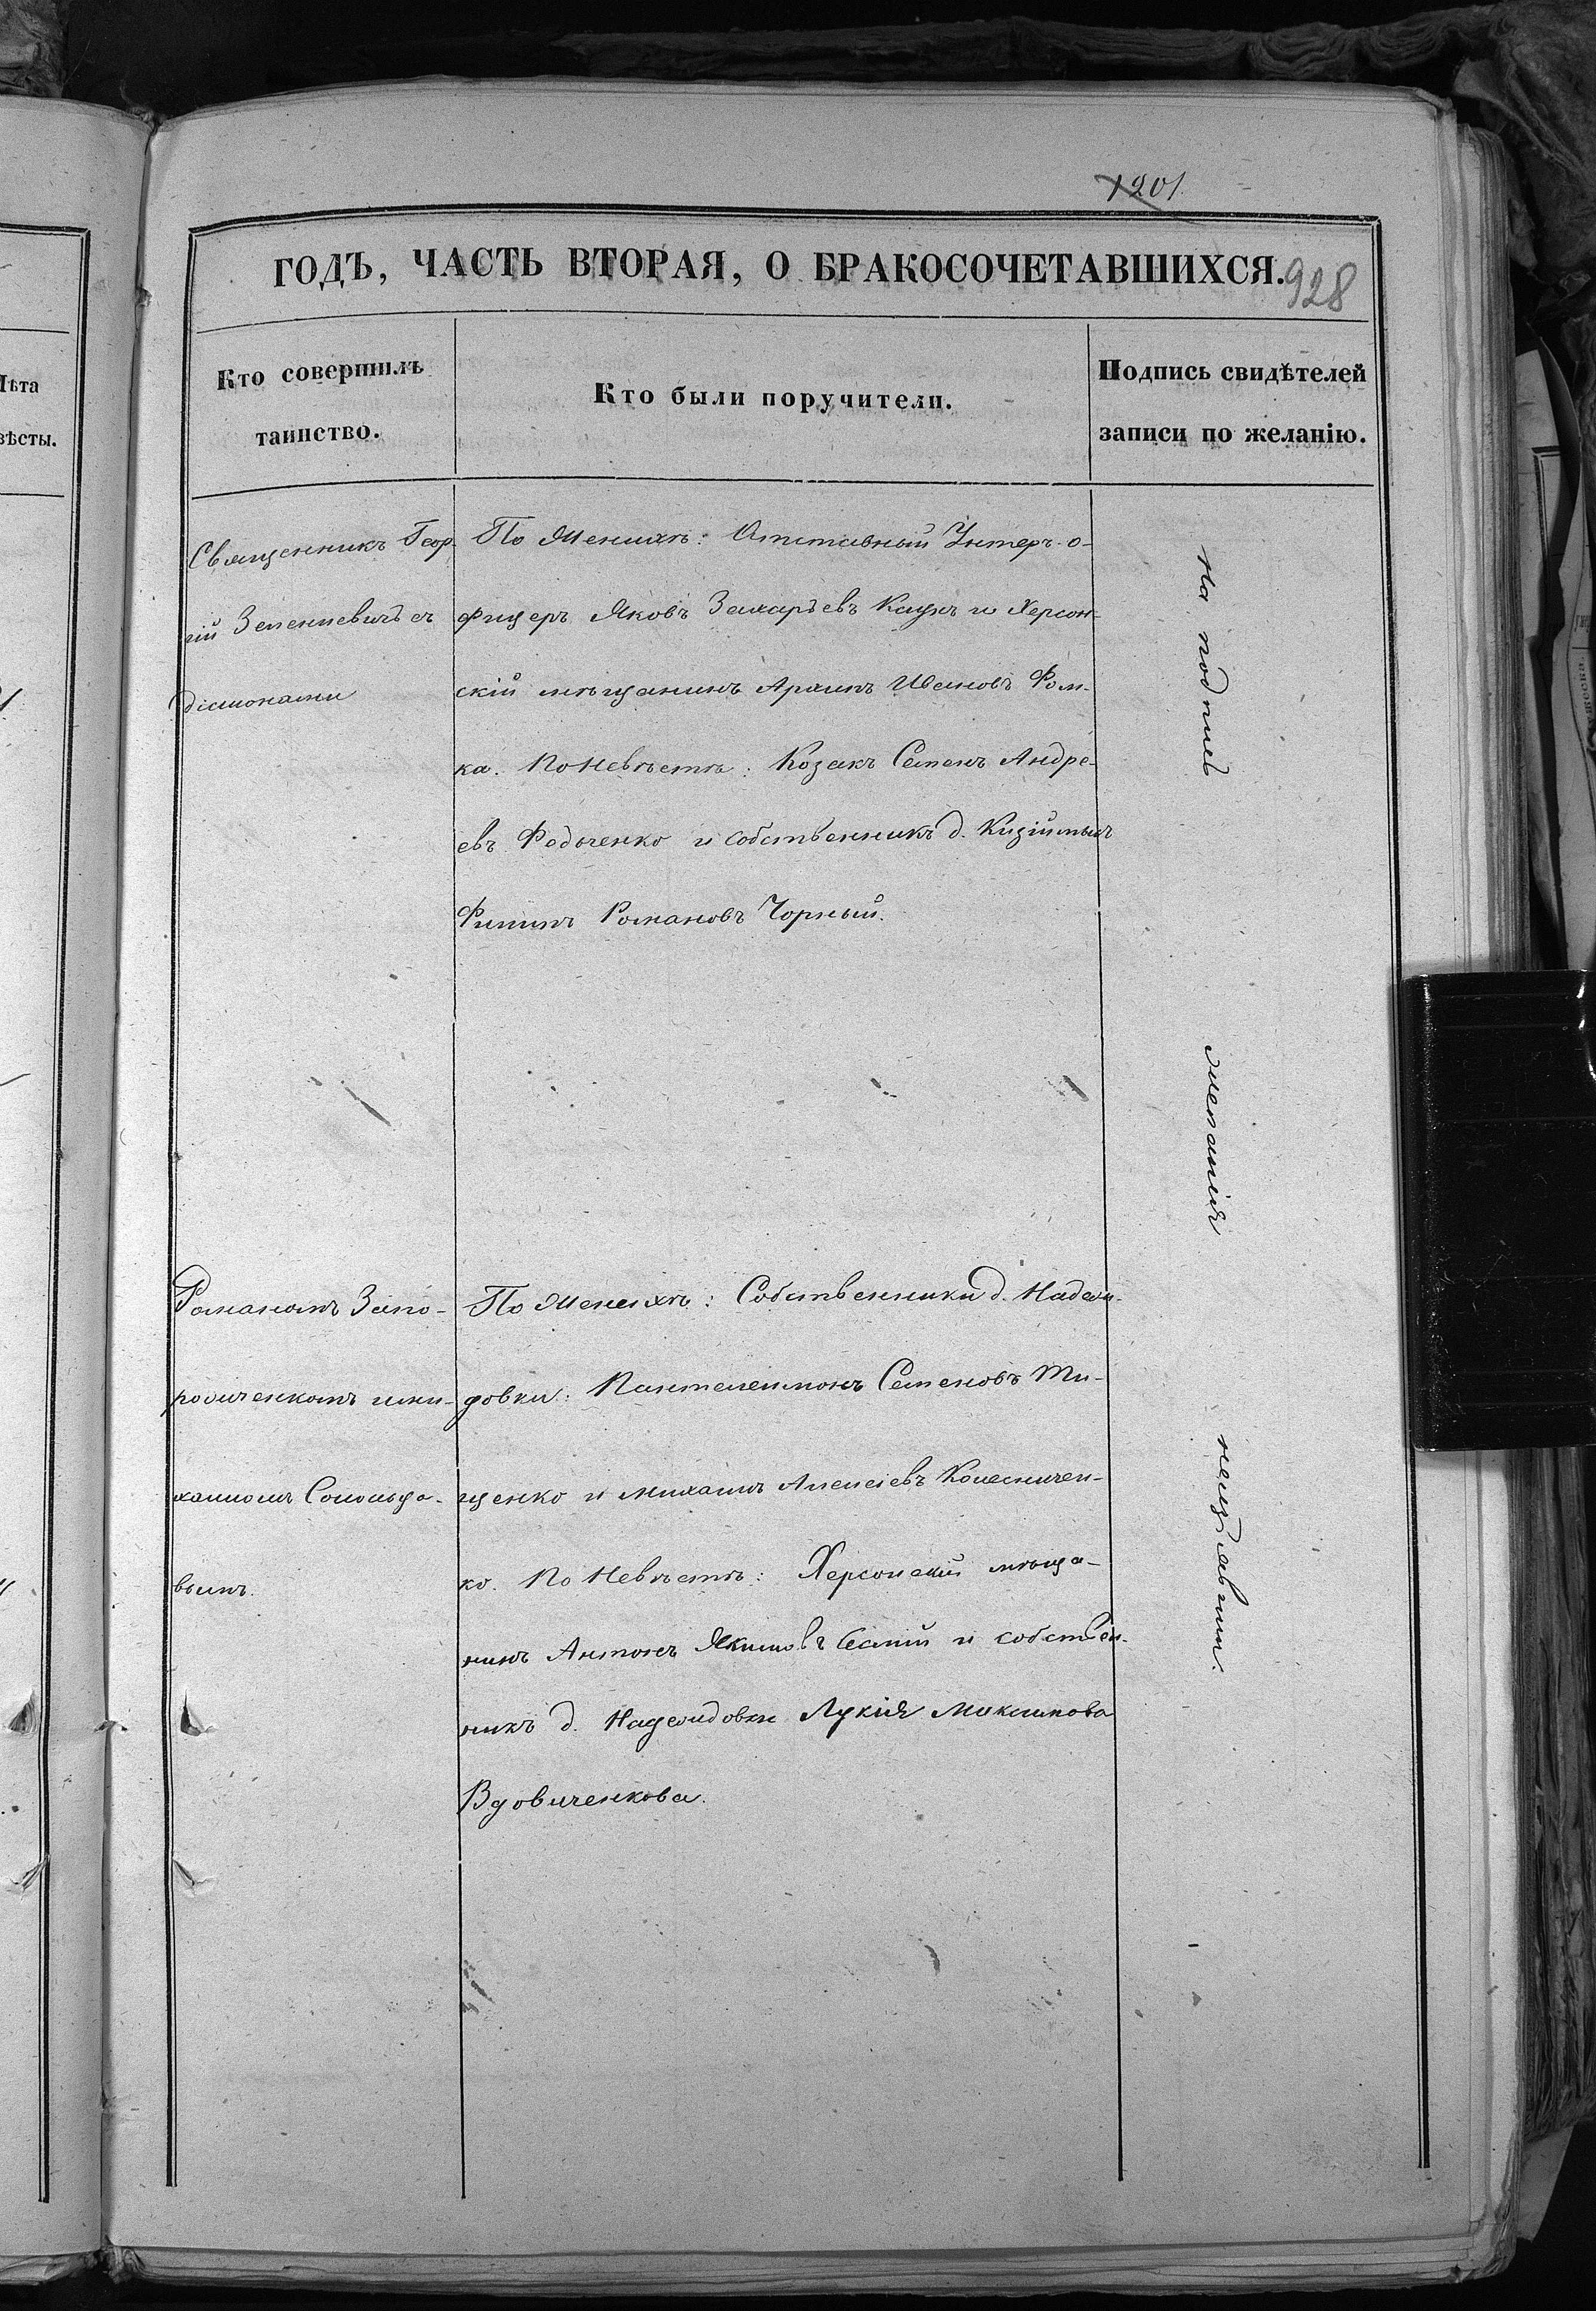 1201
ГОДЪ, ЧАСТЬ ВТОРАЯ, О БРАКОСОЧЕТАВШИХСЯ.
928
Кто совершилъ
таинство.
Кто были поручители.
Подпись свидѣтелей
записи по желанію.
Священникъ Геор-
гій Зеленкевичъ съ
діаконами
По Женихѣ: Отставный Унтеръ-о-
фицеръ Яковъ Захарьевъ Кацунъ и Херсон-
скій мѣщанинъ Иванов Фом-
ка. По Невѣстѣ: Козакъ Семенъ Андре-
евъ Федоченко и собственникъ д. Кизіймысъ
Филипъ Романовъ Чорный.
Романомъ Запо-
рожченкомъ и Ми-
хаиломъ Соколь
вымъ.
По Женихѣ: Собственники д. Надеж-
довки: Пантелеимонъ Семеновъ Ти-
щенко и Михаилъ Алексѣевъ Колесничен-
ко. По Невѣстѣ: Херсонскій мѣща-
нинъ Антонъ Якимовъ и собствен-
никъ д. Надеждовки Лукія Максимова
Вдовиченкова.
На подпись
желанія
неизъявили.
Лѣта
вѣсты.